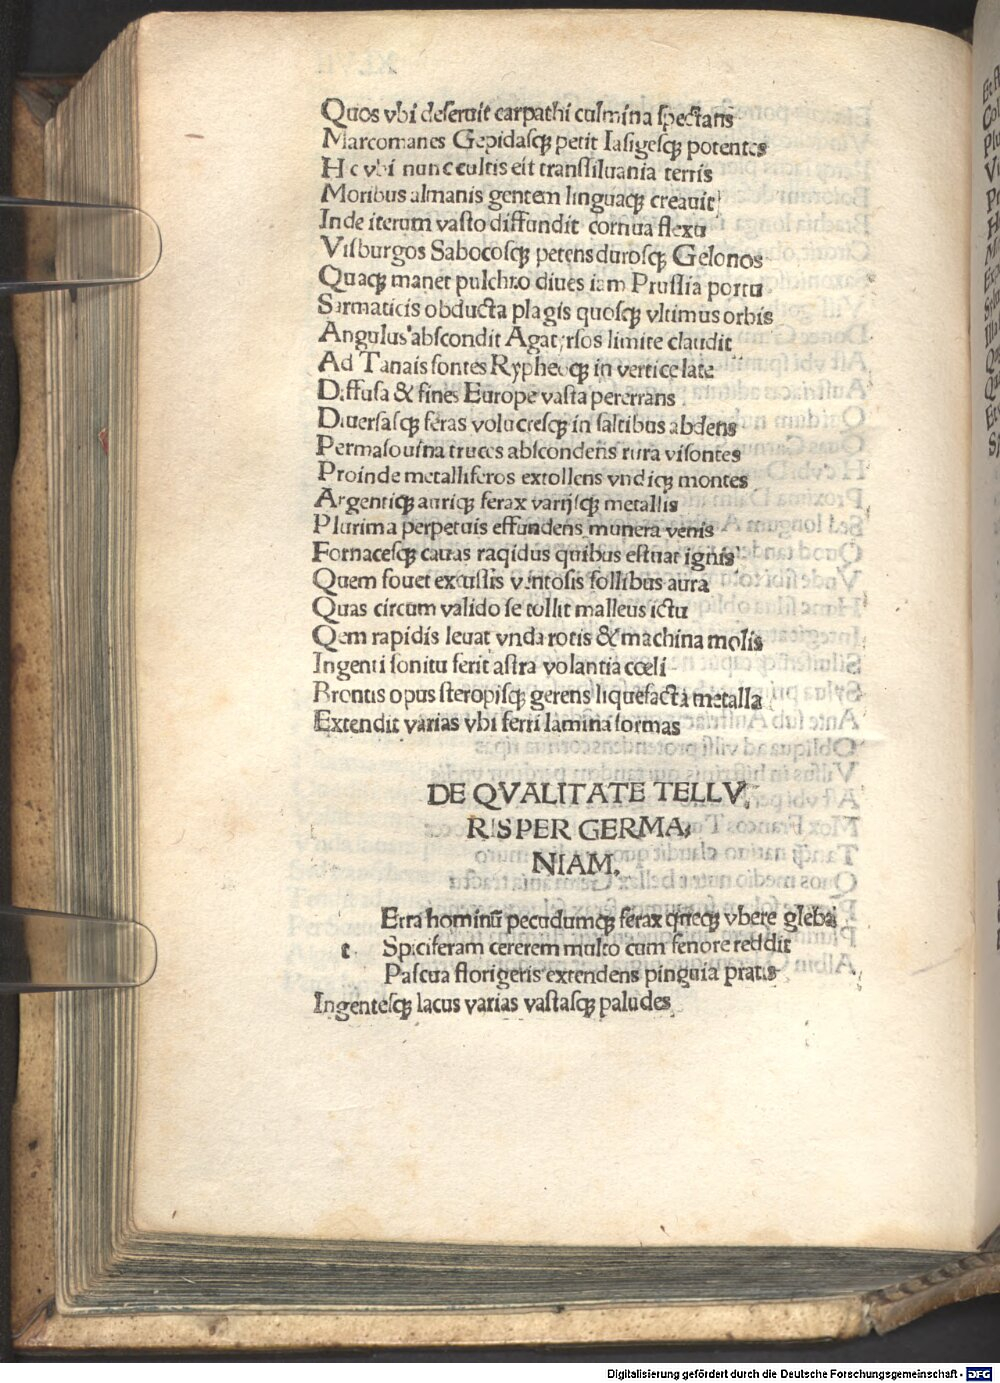 Quos vbi deſeruit carpathi culmina ſpectans
Marcomanes Gepidaſcꝗ petit Iaſigeſcꝗ potentes
Hic vbi nunc cultis eſt tranſſiluania terris
Moribus almanis gentem linguacꝗ creauit
Inde iterum vaſto diffundit cornua flexu
Viſburgos Sabocoſcꝗ petens duroſcꝗ Gelonos
Quacꝗ manet pulchro diues iam Pruſſia portu
Sarmaticis obducta plagis quoſcꝗ vltimus orbis
Angulus abſcondit Agatyrſos limite claudit
Ad Tanais fontes Rypheocꝗ in vertice late
Diffuſa & fines Europe vaſta pererrans
Diuerſaſcꝗ feras volucreſcꝗ in ſaltibus abdens
Permaſouina truces abſcondens rura viſontes
Proinde metalliferos extollens vndicꝗ montes
Argenticꝗ auricꝗ ferax varijſcꝗ metallis
Plurima perpetuis effundens munera venis
Fornaceſcꝗ cauas raqidus quibus eſtuat ignis
Quem fouet excuſſis ventoſis follibus aura
Quas circum valido ſe tollit malleus ictu
Qem rapidis leuat vnda rotis & machina molis
Ingenti ſonitu ferit aſtra volantia cœli
Brontis opus ſteropiſcꝗ gerens liquefacta metalla
Extendit varias vbi ferri lamina formas
DE QVALITATE TELLV,
RIS PER GERMA,
NIAM.
Erra hominū pecudumcꝗ ferax quecꝗ vbere glebai
t Spiciferam cererem multo cum fenore reddit
Paſcua florigeris extendens pinguia pratis
Ingenteſcꝗ lacus varias vaſtaſcꝗ paludes
Digitalisierung gefördert durch die Deutsche Forschungsgemeinschaft - DFG